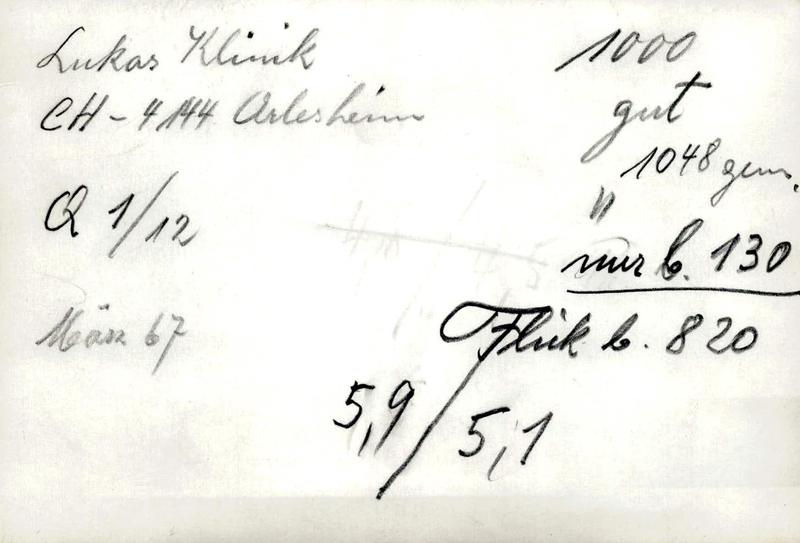 Lukas Klinik
CH-4144 Arlesheim
Q 1/12
März 67
1000
gut
1048 gem.
"
nur b. 130
Flick b. 820
5,9/5,1